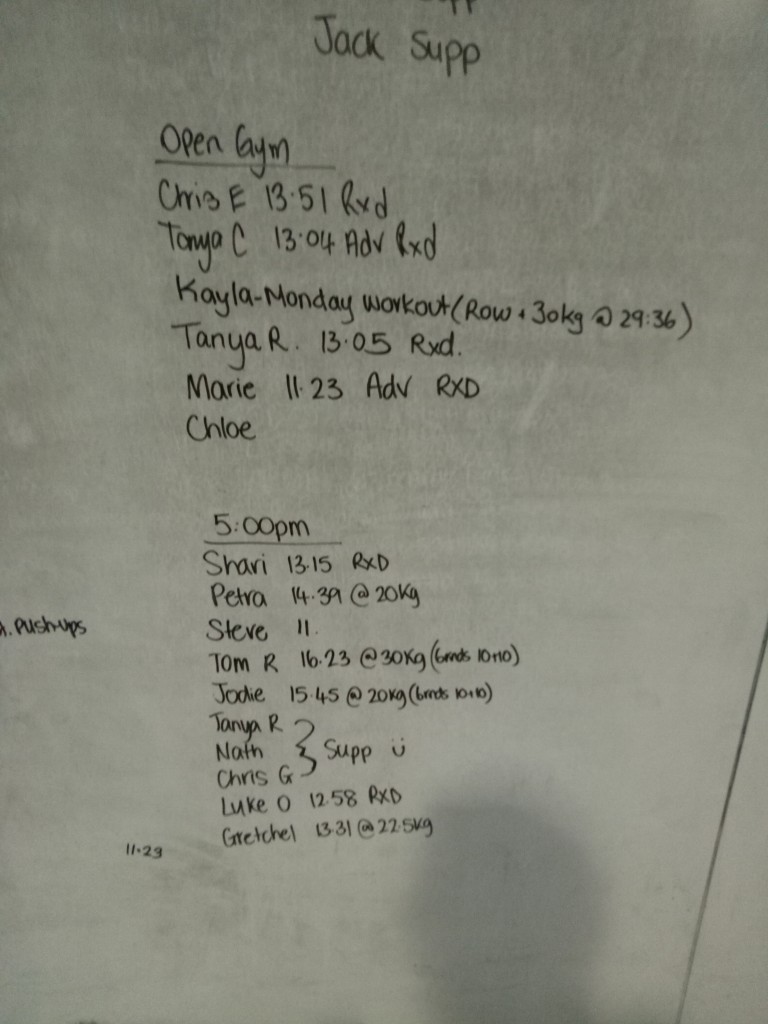 Jack Supp
Open Gym
Chris E 13.51 Rxd
Tanya C 13.04 Adv Rxd
Kayla-Monday workout (Row + 30kg @ 29:36)
Tanya R. 13.05 Rxd.
Marie 11.23 Adv RXD
Chloe
5:00pm
Shari 13.15 RXD
Petra 14.39 @ 20kg
push-ups
Steve 11.
Tom R 16.23 @ 30kg (6rnds 10+10)
Jodie 15.45 @ 20kg (6rnds 10+10)
Tanya R
Nath } Supp ü
Chris G
Luke O 12.58 RXD
Gretchel 13.31 @ 22.5kg
11.29